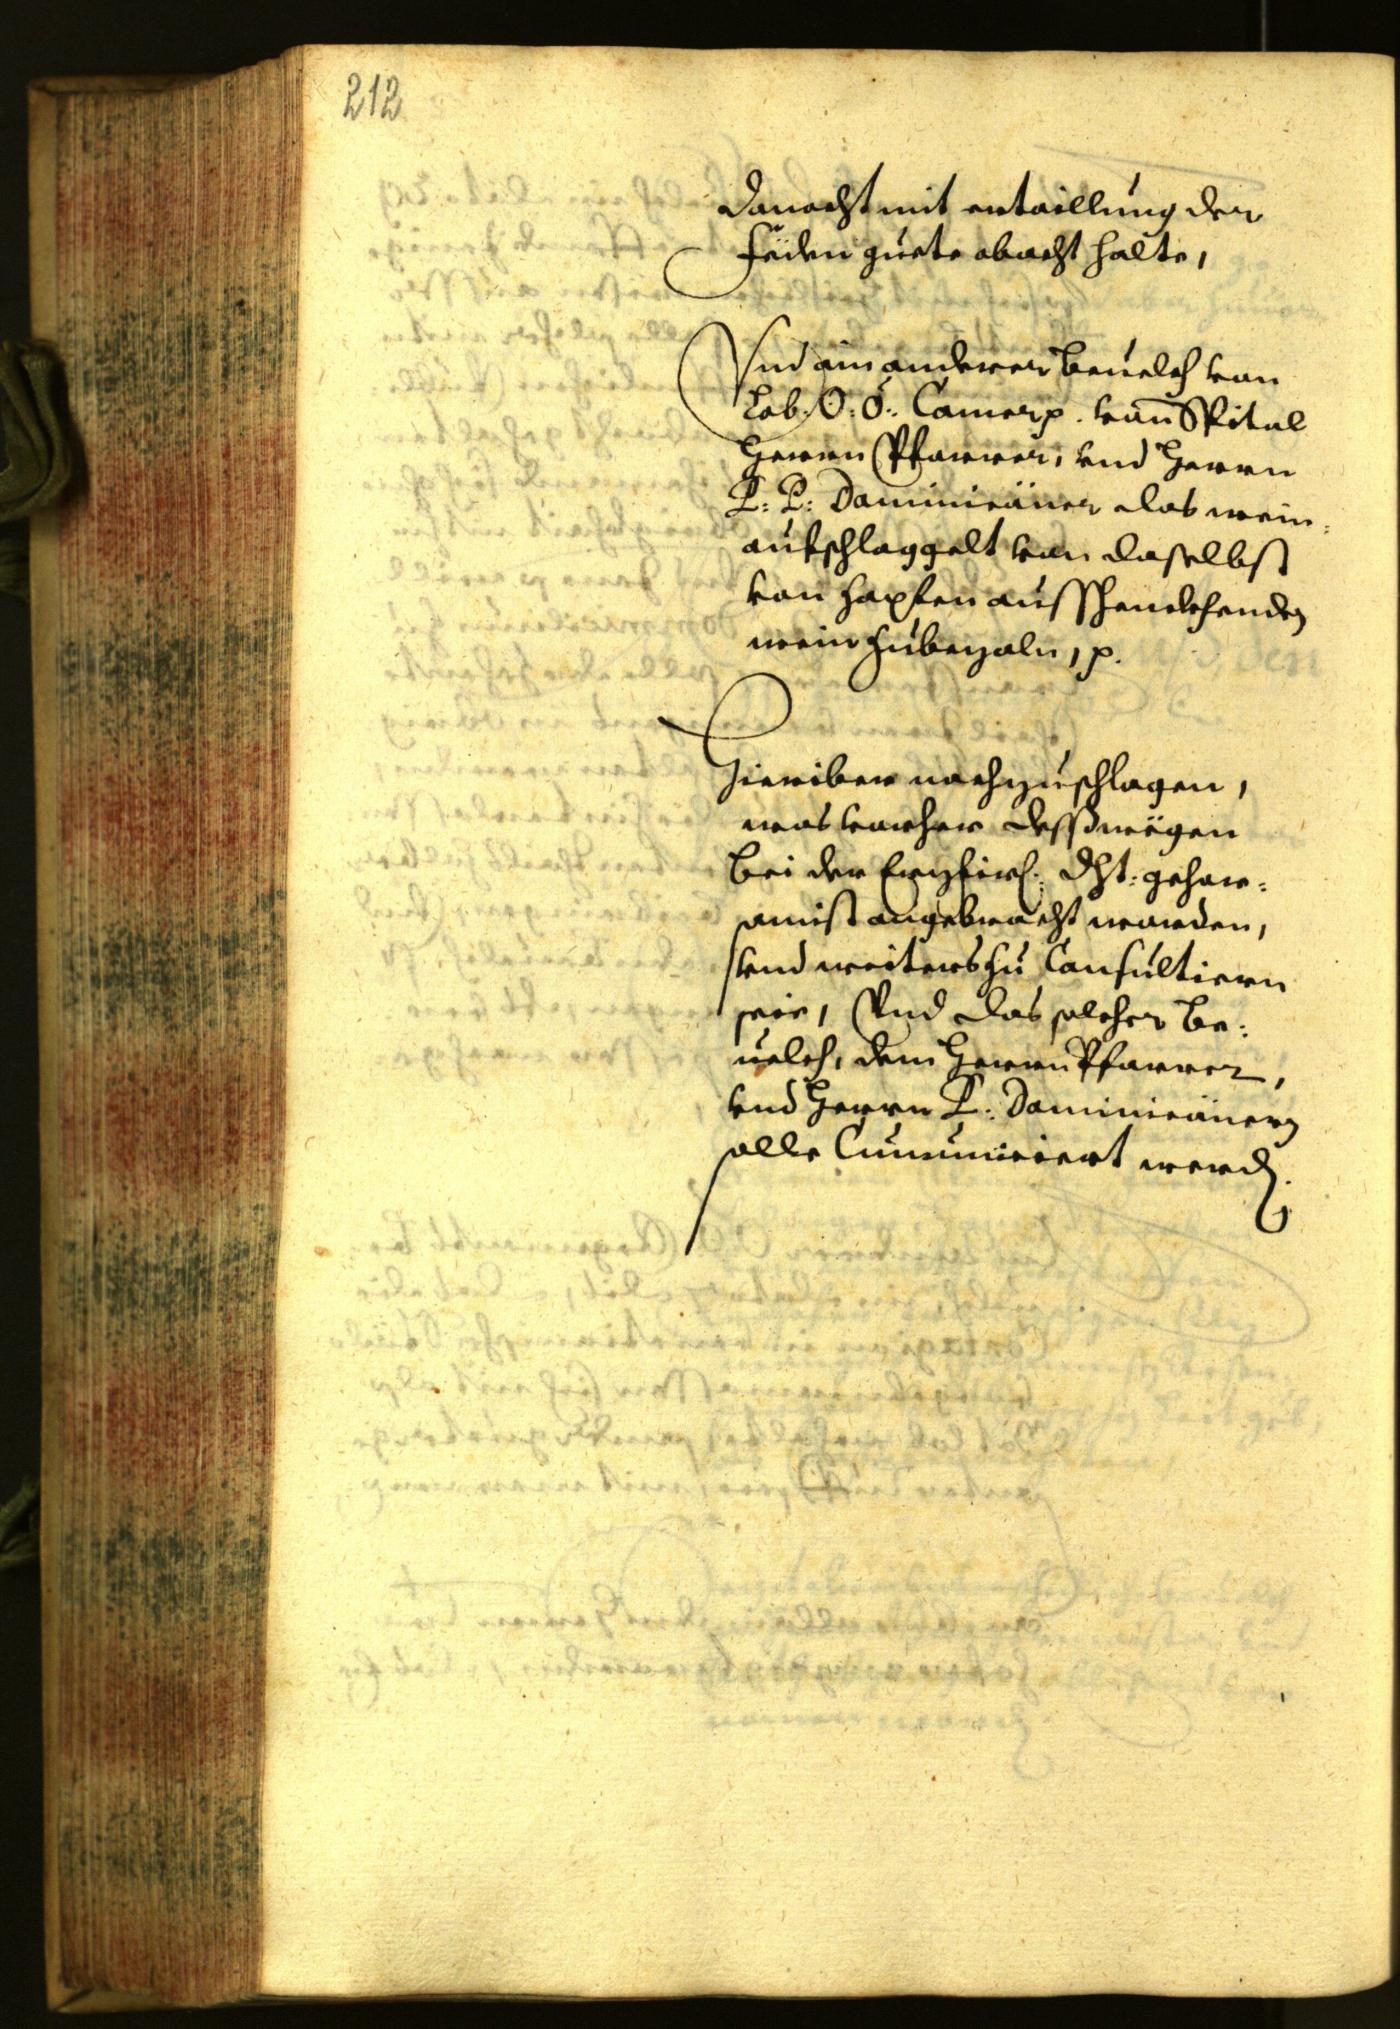 212
danocht mit ertaillung der
feden guete obacht halte,
Vnd ain anderer beuelch von
Lob: O: Ö: Camer p. von Spital
Herrn Pfarrer, vnd Herrn
P: P: Dominicaner das wein-
aufschlaggelt von daselbst
von zapfen aussschenckhenden
wein zubezaln, p.
Hieriber nachzuschlagen,
was vorher desswëgen
bei der Erzfirl: Dht: gehor-
samist angebracht worden,
vnd weiters zu Consultiern
seie, Vnd das solcher be-
uelch, dem Herrn Pfarrer,
vnd Herrn P: Dominicanern
solle Cumuniciert werden.